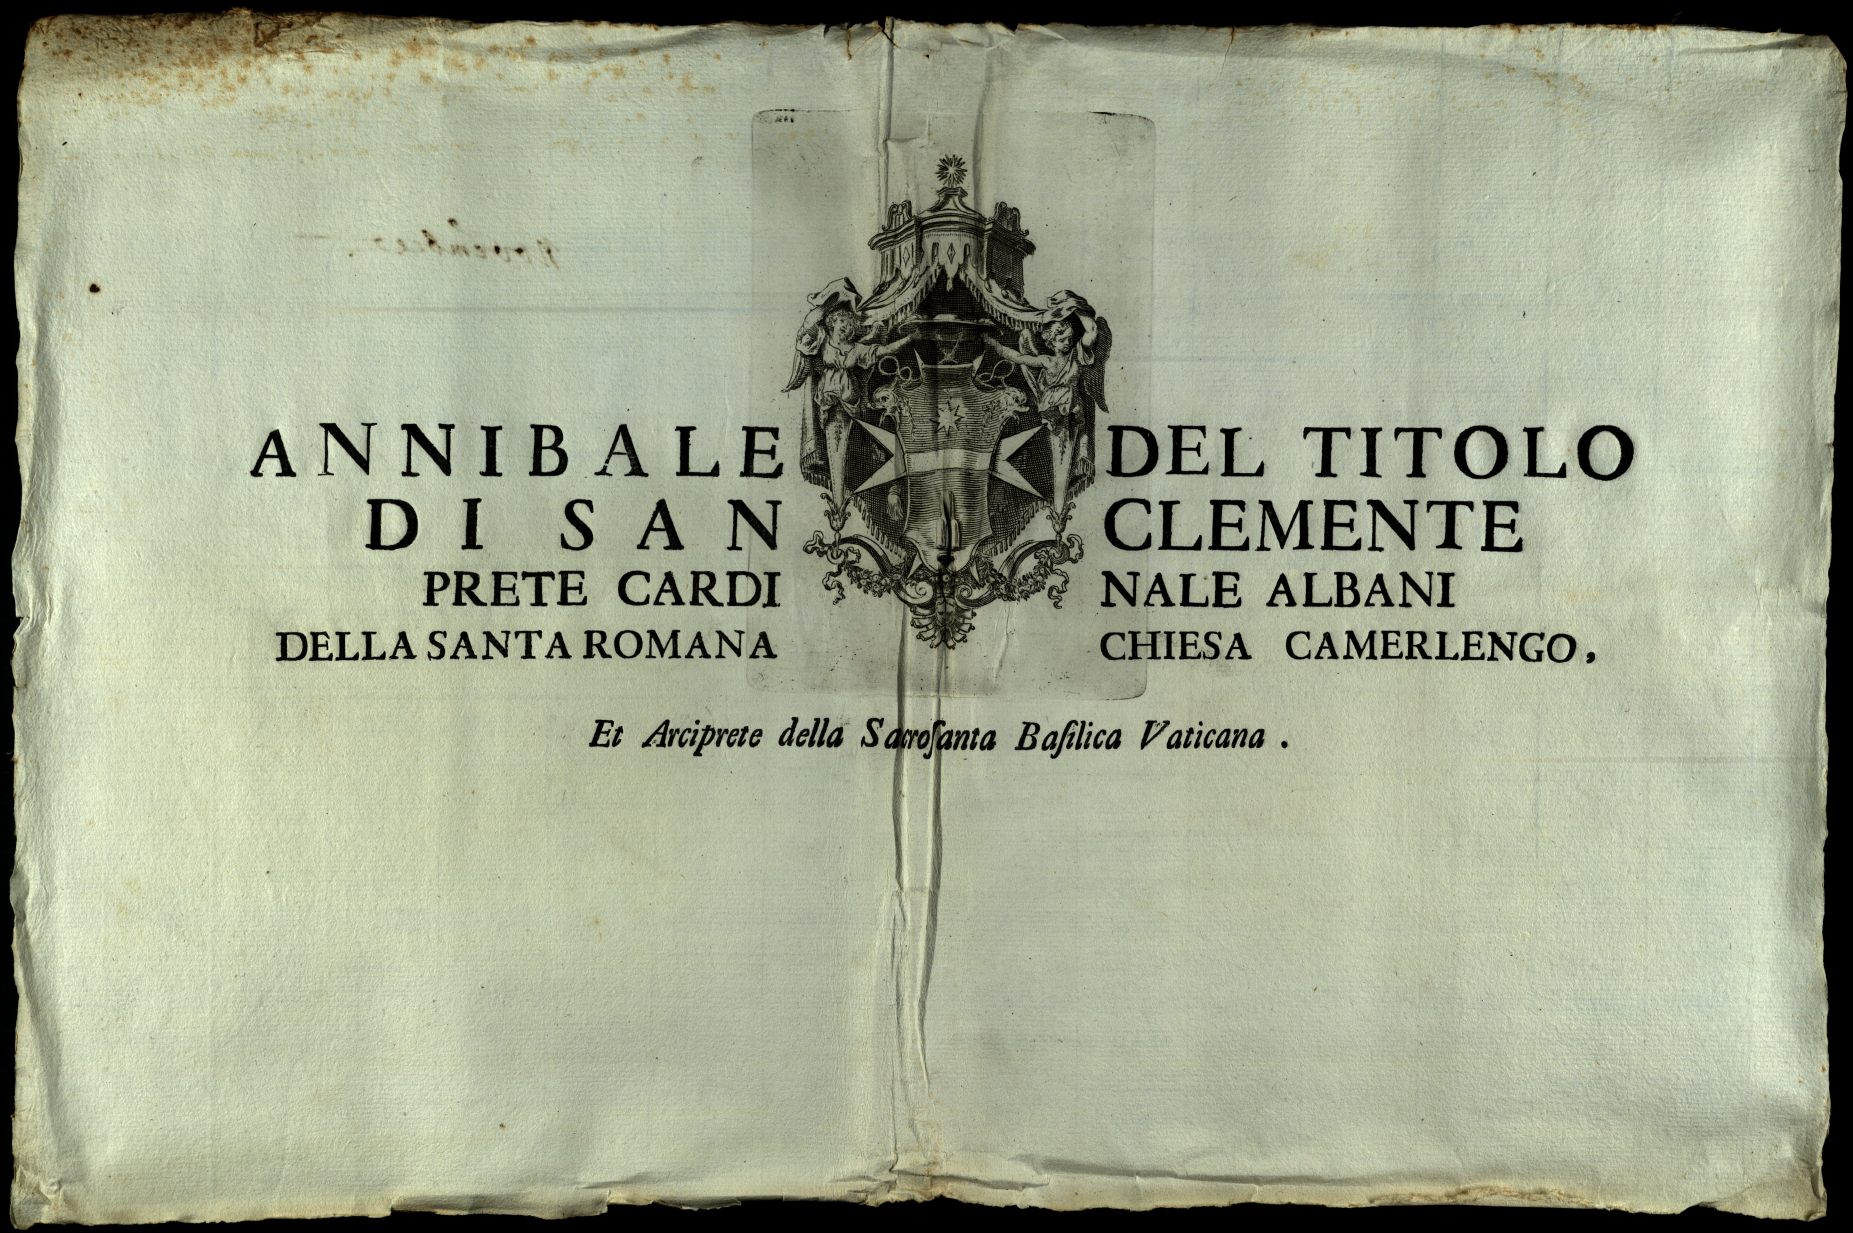 ANNIBALE DEL TITOLO
DI SAN CLEMENTE
PRETE CARDI NALE ALBANI
DELLA SANTA ROMANA CHIESA CAMERLENGO,
Et Arciprete della Sacroſanta Baſilica Vaticana .